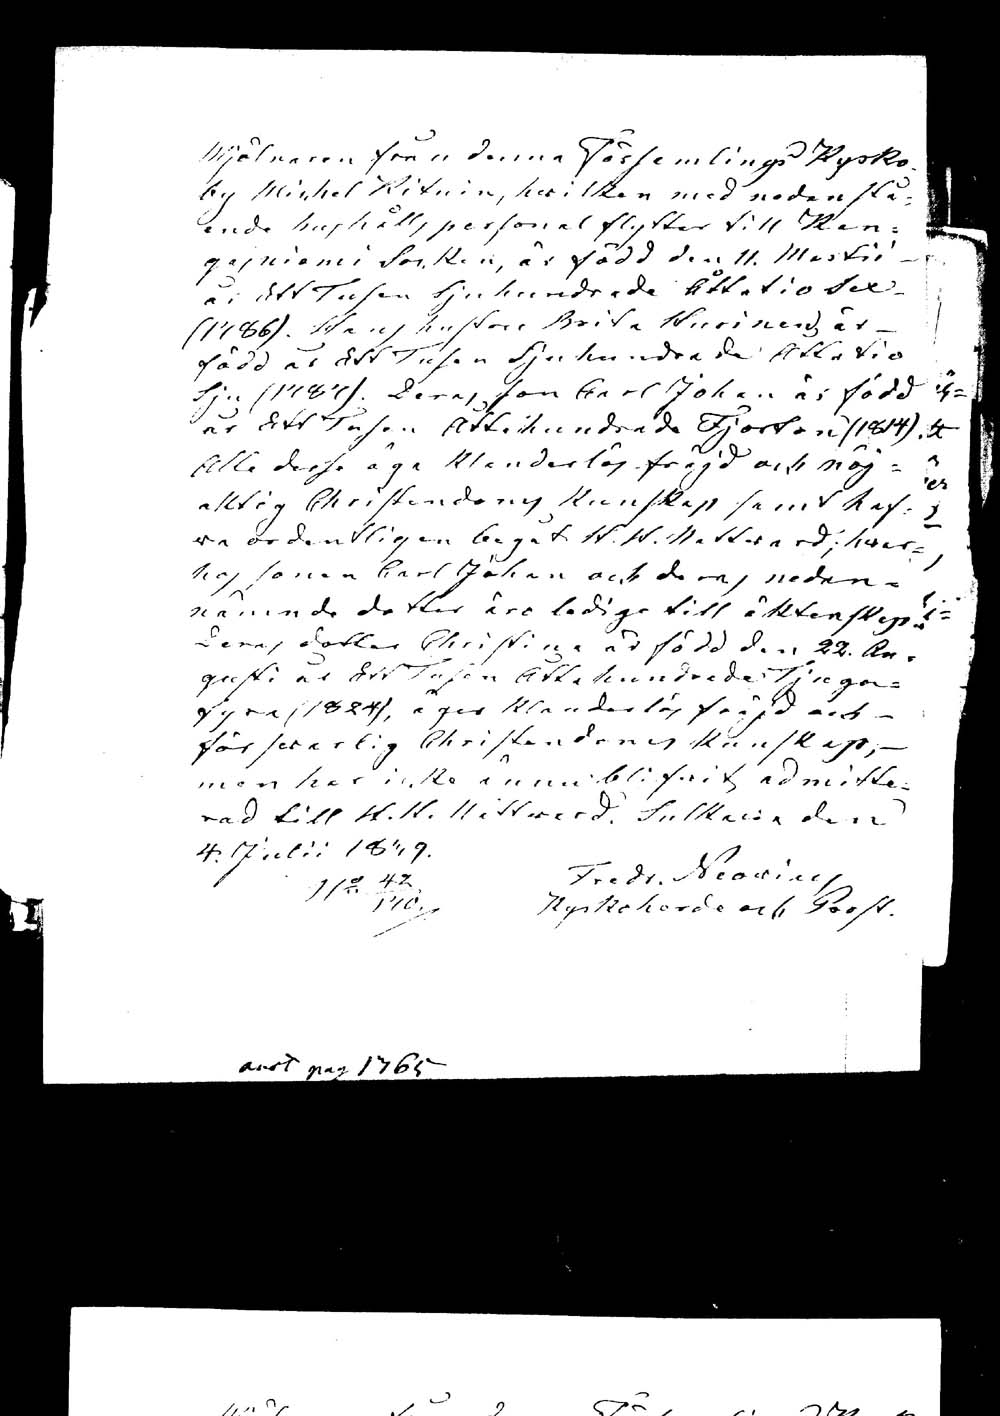 Mjölnaren från denna Församlings Kyrko-
by Michel Kituin, hvilken med nedanstå-
ende hushålls personal flyttar till Kan-
gasniemi Socken, är född den 11. Martii
år Ett Tusen Sjuhundrade Åttatio Sex
(1786). Hans hustru Brita Hurinen är
född år Ett Tusen Sjuhundrade Åttatio
Sju (1787). Deras son Carl Johan är född
år Ett Tusen Åttahundrade Fjorton (1814).
Alla desse äga klanderlös fräjd och nöj-
aktig Christendoms kunskap samt haf-
va ordentligen begåt H. H. Nattvard; hvar-
hos sonen Carl Johan och deras nedan-
nämnde dotter äro ledige till äktenskap.
Deras dotter Christina är född den 22. Au-
gusti år Ett Tusen Åttahundrade Tjugu-
fyra (1824), äger klanderlös fräjd och
försvarlig Christendoms kunskap,
men har icke ännu blifvit admitte-
rad till H. H. Nattvard. Sulkava den
4. Julii 18 9.
No 42 / 170.
Fredr. Neovius
Kyrkoherde och Prost.
pag 1765